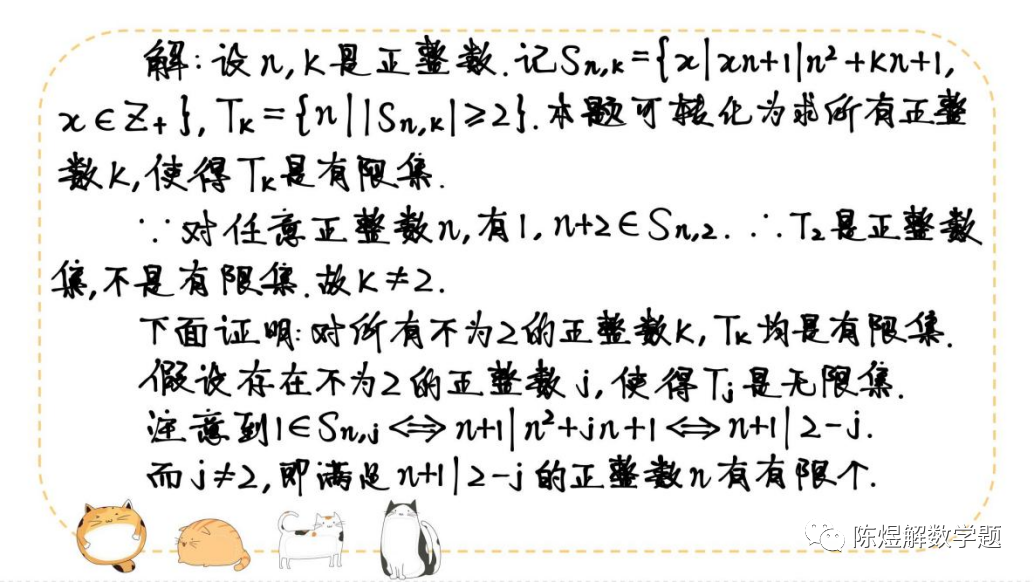 解:设n,k是正整数.记Sn,k={x|xn+1|n²+kn+1,
x∈Z+},Tk={n||Sn,k|≥2}.本题可转化为求所有正整
数k,使得Tk是有限集.
∵对任意正整数n,有1,n+2∈Sn,2.∴T2是正整数
集,不是有限集.故k≠2.
下面证明:对所有不为2的正整数k,Tk均是有限集.
假设存在不为2的正整数j,使得Tj是无限集.
注意到1∈Sn,j⇔n+1|n²+jn+1⇔n+1|2-j.
而j≠2,即满足n+1|2-j的正整数n有有限个.
陈煜解数学题